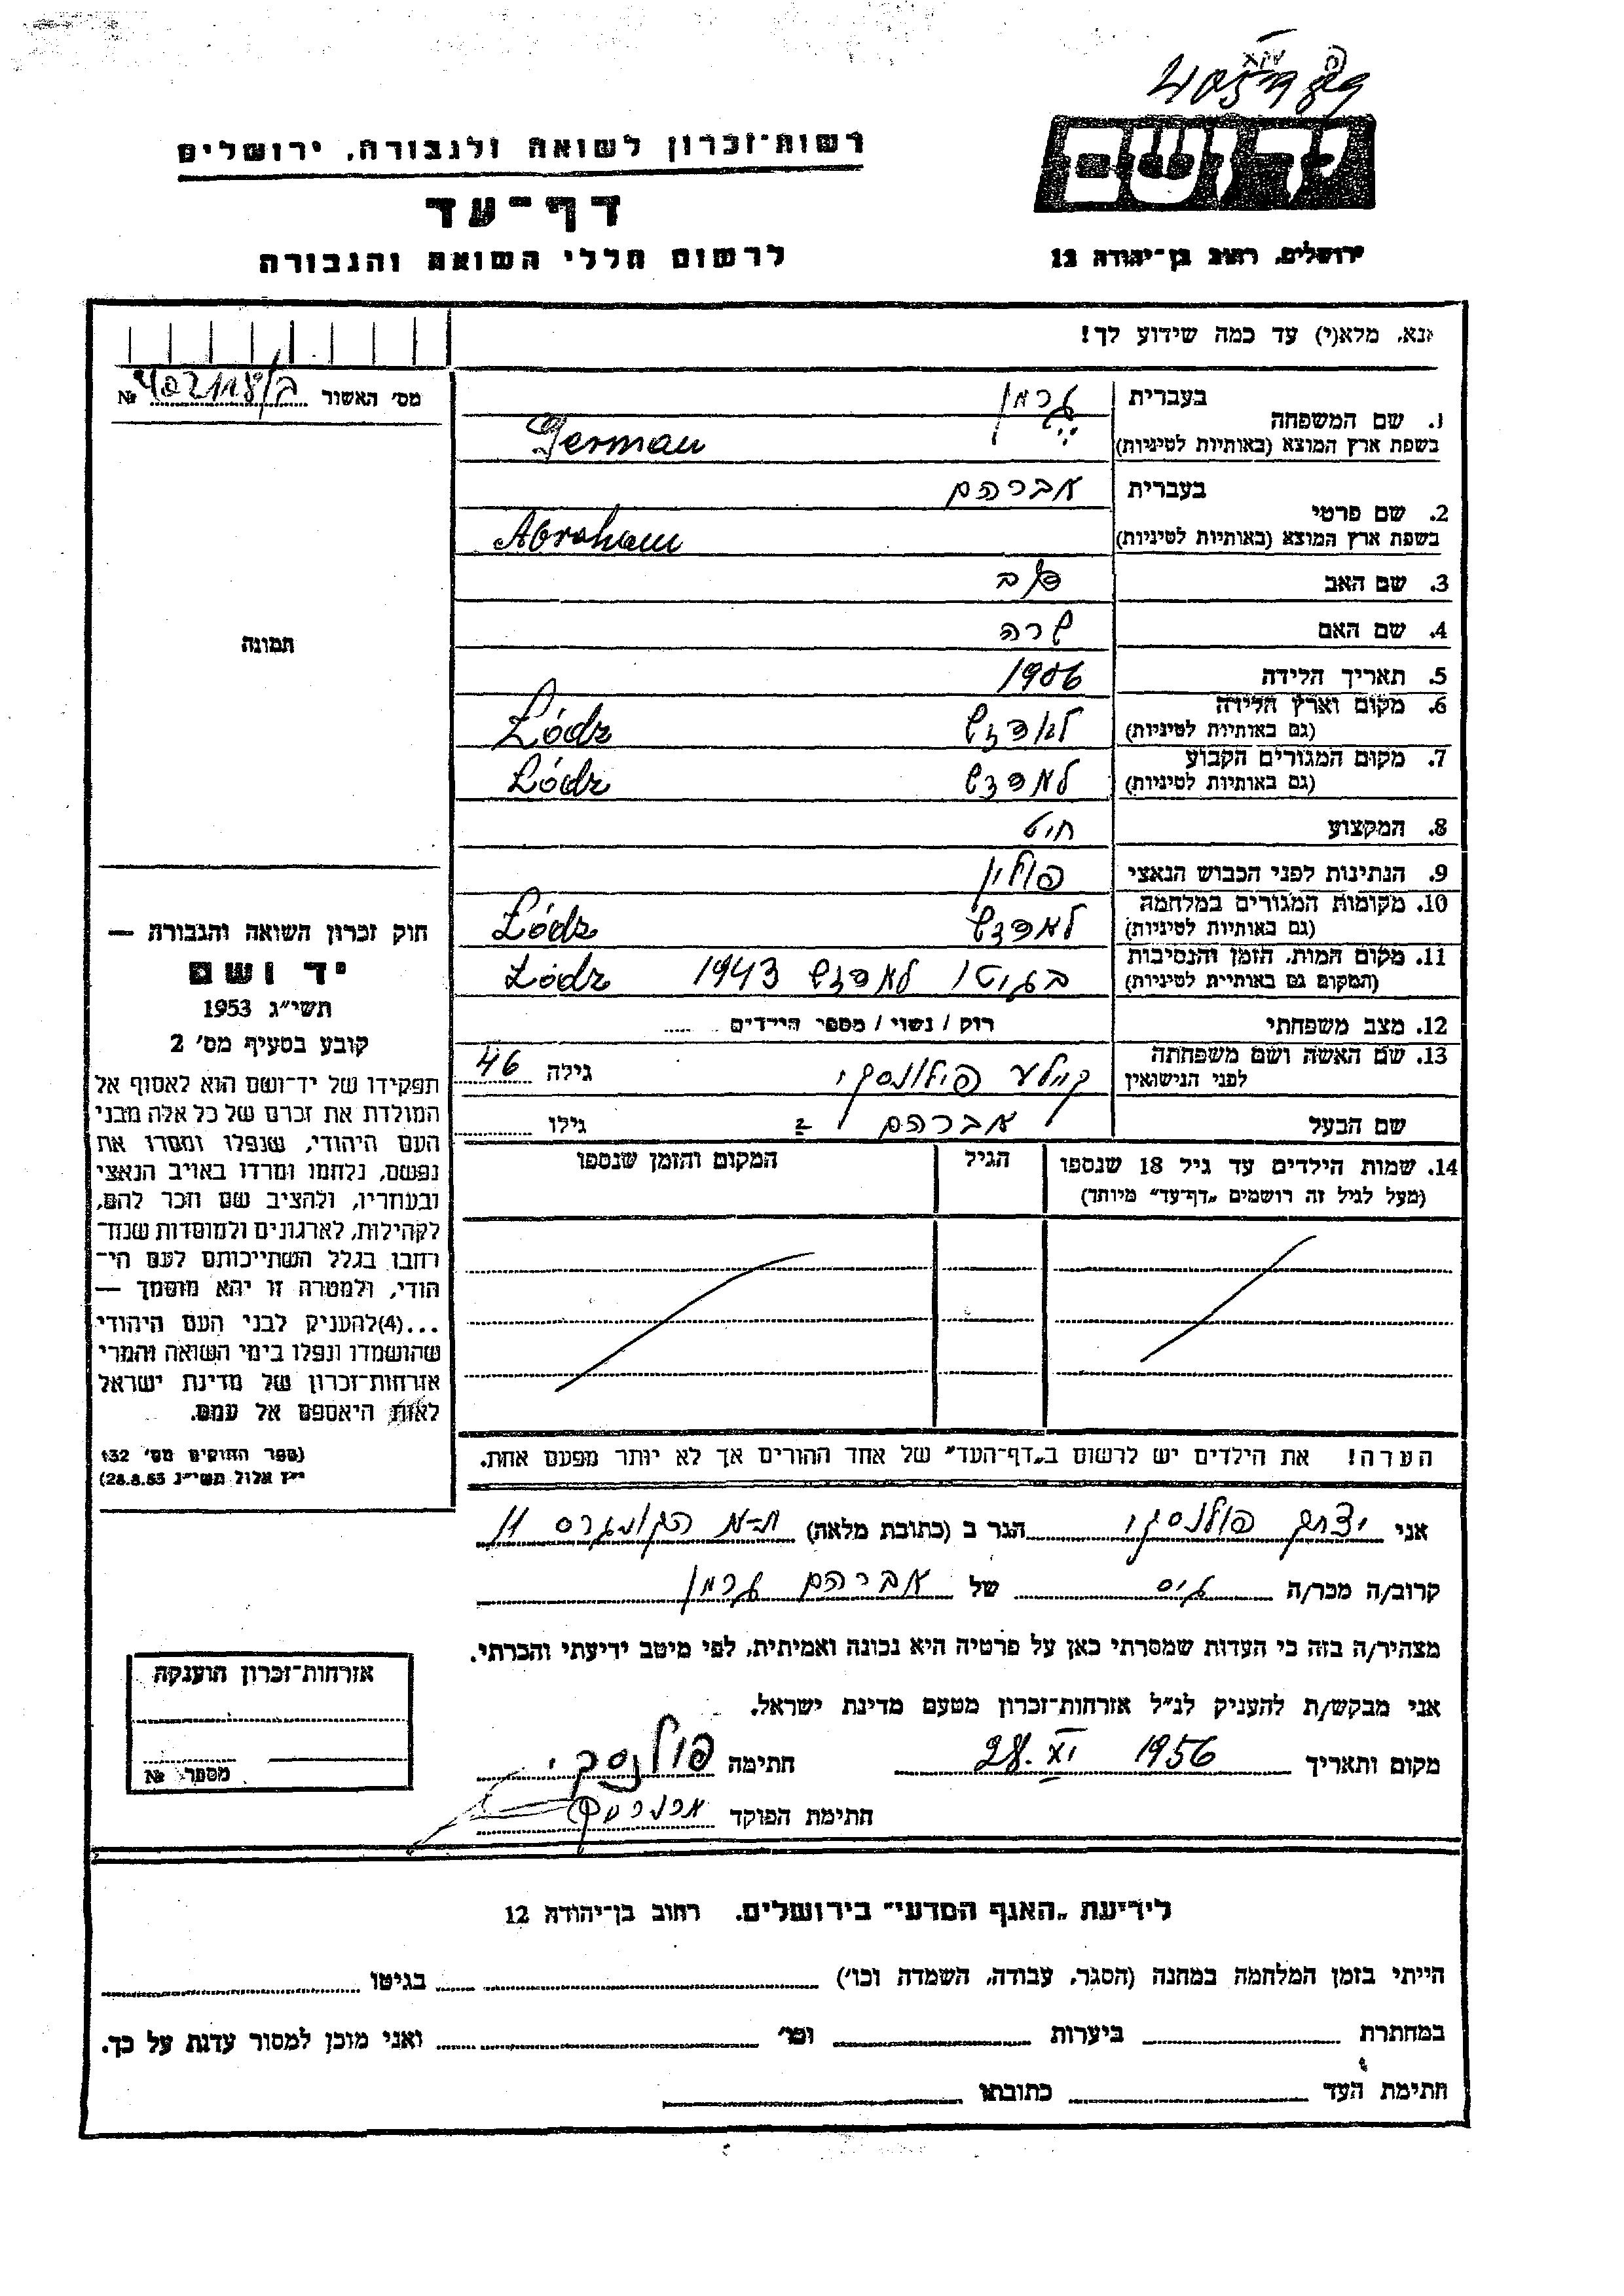 רשות־זכרון לשואה ולגבורה, ירושלים
דף־עד
לרשום חללי השואה והגבורה
יד ושם
ירושלים, רחוב בן־יהודה 12
אנא, מלא(י) עד כמה שידוע לך!
מס' האשור №
1. שם המשפחה
בעברית גרמן
בשפת ארץ המוצא (באותיות לטיניות) German
2. שם פרטי
בעברית אברהם
בשפת ארץ המוצא (באותיות לטיניות) Abraham
3. שם האב
4. שם האם שרה
5. תאריך הלידה 1906
6. מקום וארץ הלידה
(גם באותיות לטיניות) לאדזש Łódz
7. מקום המגורים הקבוע
(גם באותיות לטיניות) לאדזש Łódz
8. המקצוע חיט
9. הנתינות לפני הכבוש הנאצי פולין
10. מקומות המגורים במלחמה
(גם באותיות לטיניות) לאדזש Łódz
11. מקום המות, הזמן והנסיבות
(המקום גם באותיות לטיניות) בגיטו לאדזש 1943 Łódz
12. מצב משפחתי רוק / נשוי / מספר הילדים
13. שם האשה ושם משפחתה
לפני הנישואין קיילע פולונסקי גילה 46
שם הבעל אברהם גילו
14. שמות הילדים עד גיל 18 שנספו הגיל המקום והזמן שנספו
(מעל לגיל זה רושמים „דף־עד" מיוחד)
הערה! את הילדים יש לרשום ב„דף־העד" של אחד ההורים אך לא יותר מפעם אחת.
תמונה
חוק זכרון השואה והגבורה —
יד ושם
תשי"ג 1953
קובע בסעיף מס' 2
תפקידו של יד־ושם הוא לאסוף אל
המולדת את זכרם של כל אלה מבני
העם היהודי, שנפלו ומסרו את
נפשם, נלחמו ומרדו באויב הנאצי
ובעוזריו, ולהציב שם וזכר להם,
לקהילות, לארגונים ולמוסדות שנח־
רבו בגלל השתייכותם לעם הי־
הודי, ולמטרה זו יהא מוסמך —
...(4)להעניק לבני העם היהודי
שהושמדו ונפלו בימי השואה והמרי
אזרחות־זכרון של מדינת ישראל
לאות היאספם אל עמם.
(ספר החוקים מס' 132
י"ז אלול תשי"ג 28.8.53)
אני יצחק פולונסקי הגר ב (כתובת מלאה) ת-א הקונגרס 11
קרוב/ה מכר/ה גיס של אברהם גרמן
מצהיר/ה בזה כי העדות שמסרתי כאן על פרטיה היא נכונה ואמיתית, לפי מיטב ידיעתי והכרתי.
אני מבקש/ת להעניק לנ"ל אזרחות־זכרון מטעם מדינת ישראל.
מקום ותאריך 28.XI 1956 חתימה פולנסקי
חתימת הפוקד
אזרחות־זכרון הוענקה
מספר №
לידיעת „האגף המדעי" בירושלים, רחוב בן־יהודה 12
הייתי בזמן המלחמה במחנה (הסגר, עבודה, השמדה וכו') בגיטו
במחתרת ביערות וכו' ואני מוכן למסור עדות על כך.
חתימת העד כתובתו